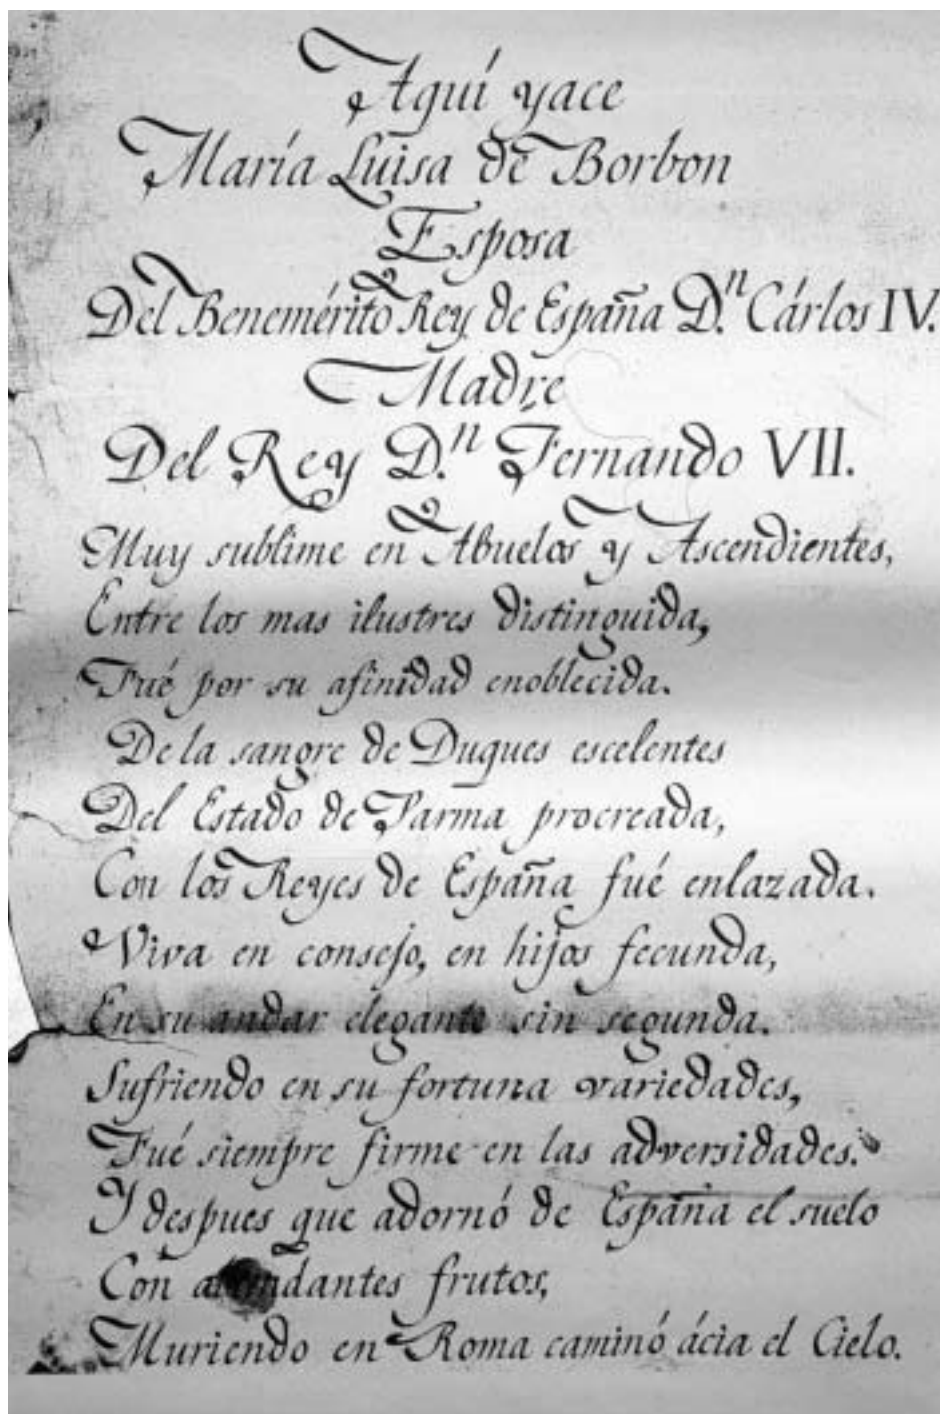 Aquí yace
María Luisa de Borbon
Esposa
Del Benemérito Rey de España D.n Cárlos IV.
Madre
Del Rey D.n Fernando VII.
Muy sublime en Abuelos y Ascendientes,
Entre los mas ilustres distinguida,
Fué por su afinidad enoblecida.
De la sangre de Duques escelentes
Del Estado de Parma procreada,
Con los Reyes de España fué enlazada.
Viva en consejo, en hijos fecunda,
En su andar elegante sin segunda.
Sufriendo en su fortuna variedades,
Fué siempre firme en las adversidades.
Y despues que adornó de España el suelo
Con abundantes frutos,
Muriendo en Roma caminó ácia el Cielo.